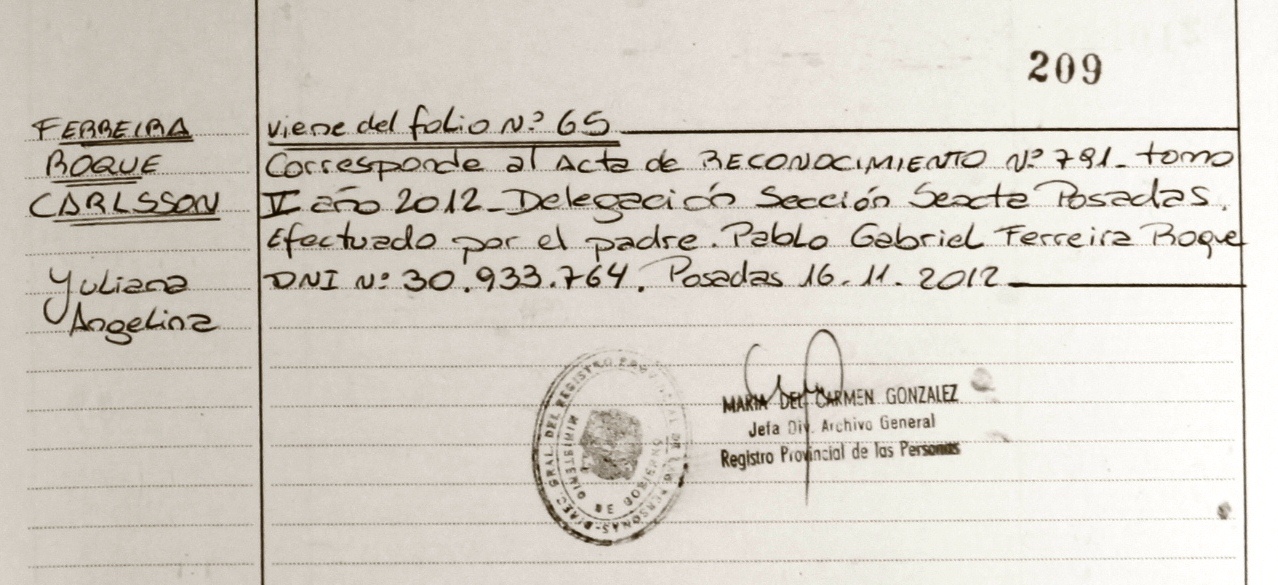 209
FERREIRA
ROQUE
CARLSSON
Yuliana
Angelina
viene del folio N.º 65
Corresponde al Acta de RECONOCIMIENTO Nº 791. tomo
V año 2012 - Delegación Sección Sexta Posadas.
Efectuado por el padre. Pablo Gabriel Ferreira Roque
DNI Nº 30.933.764. Posadas 16.11.2012
MARIA DEL CARMEN GONZALEZ
Jefa Div. Archivo General
Registro Provincial de las Personas
DIREC. GRAL. DEL REGISTRO PROVINCIAL DE LAS PERSONAS
MINISTERIO DE GOBIERNO